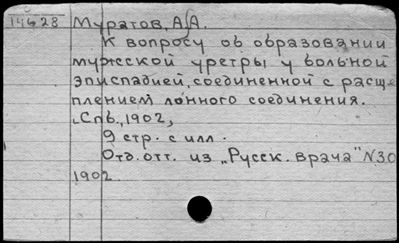 14628 Муратов, А.А.
К вопросу об образовании
мужской уретры у больной
эписпадией, соединенной с расще
плением лонного соединения.
Спб., 1902,
9 стр. с илл.
Отд. отт. из „Русск. врача" N30
1902.